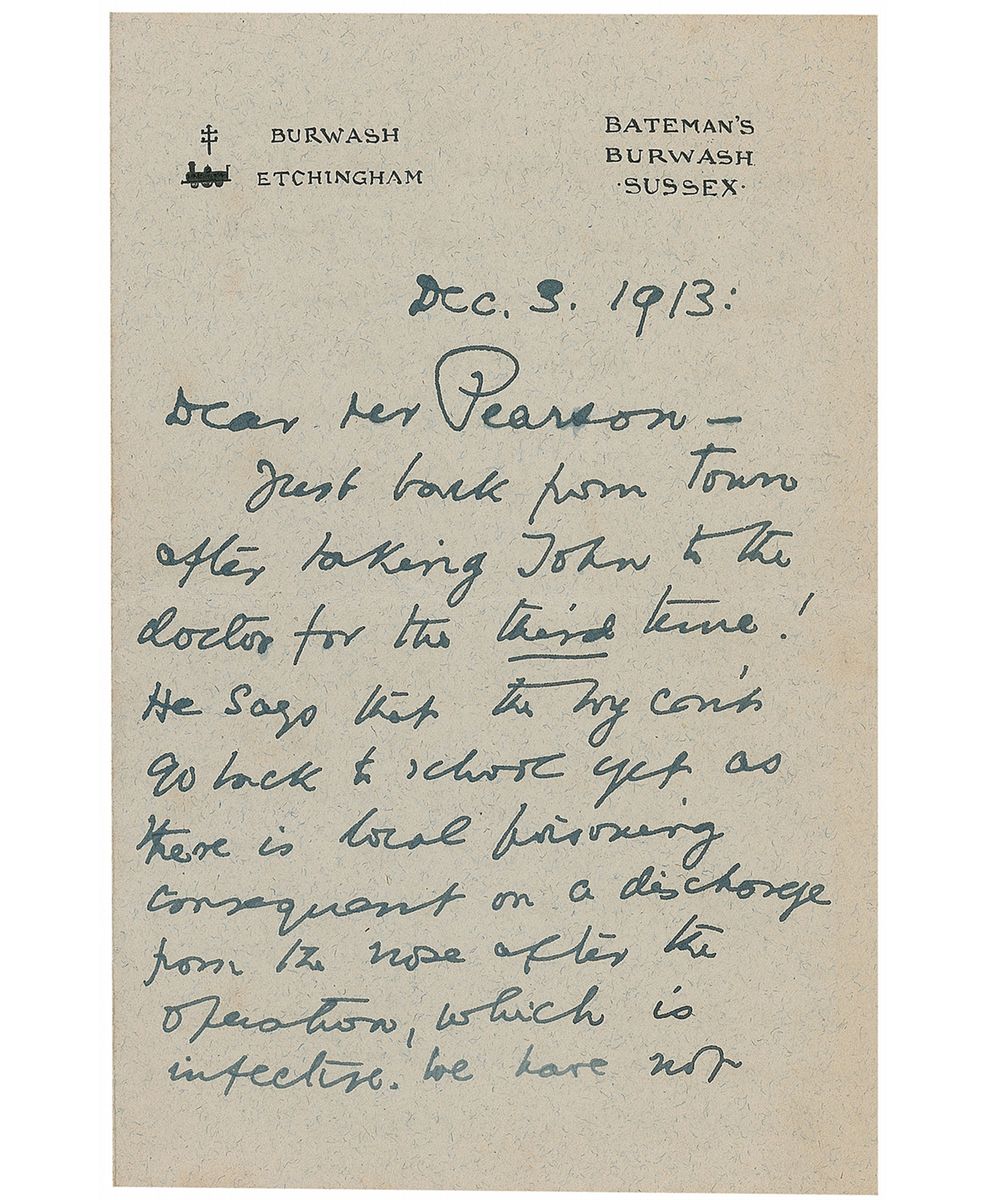 BURWASH
ETCHINGHAM
BATEMAN'S
BURWASH
·SUSSEX·
Dec. 3. 1913:
Dear Mr Pearson –
Just back from Town
after taking John to the
doctor for the third time!
He says that the boy can't
go back to school yet as
there is local poisoning
consequent on a discharge
from the nose after the
operation, which is
infective. We have not